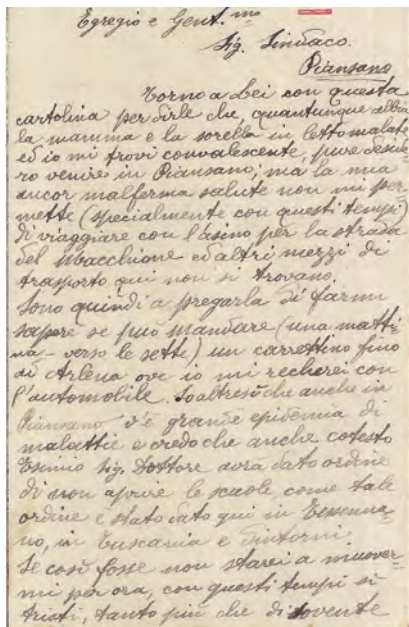 Egregio e Gent.mo
Sig. Sindaco.
Piansano
Torno a Lei con questa
cartolina per dirle che, quantunque abbia
la mamma e la sorella in letto malate
ed io mi trovi convalescente, pure deside-
ro venire in Piansano; ma la mia
ancor malferma salute non mi per
mette (specialmente con questi tempi)
di viaggiare con l'asino per la strada
del Macchione ed altri mezzi di
trasporto qui non si trovano.
Sono quindi a pregarla di farmi
sapere se può mandare (una matti
na - verso le sette) un carrettino fino
ad Arlena ove io mi recherei con
l'automobile. So altresì che anche in
Piansano v'è grande epidemia di
malattie e credo che anche cotesto
Esimio Sig. Dottore avrà dato ordine
di non aprire le scuole, come tale
ordine è stato dato qui in Tessenna-
no, in Tuscania e dintorni.
Se così fosse non starei a muover
mi per ora, con questi tempi sì
tristi, tanto più che di sovente